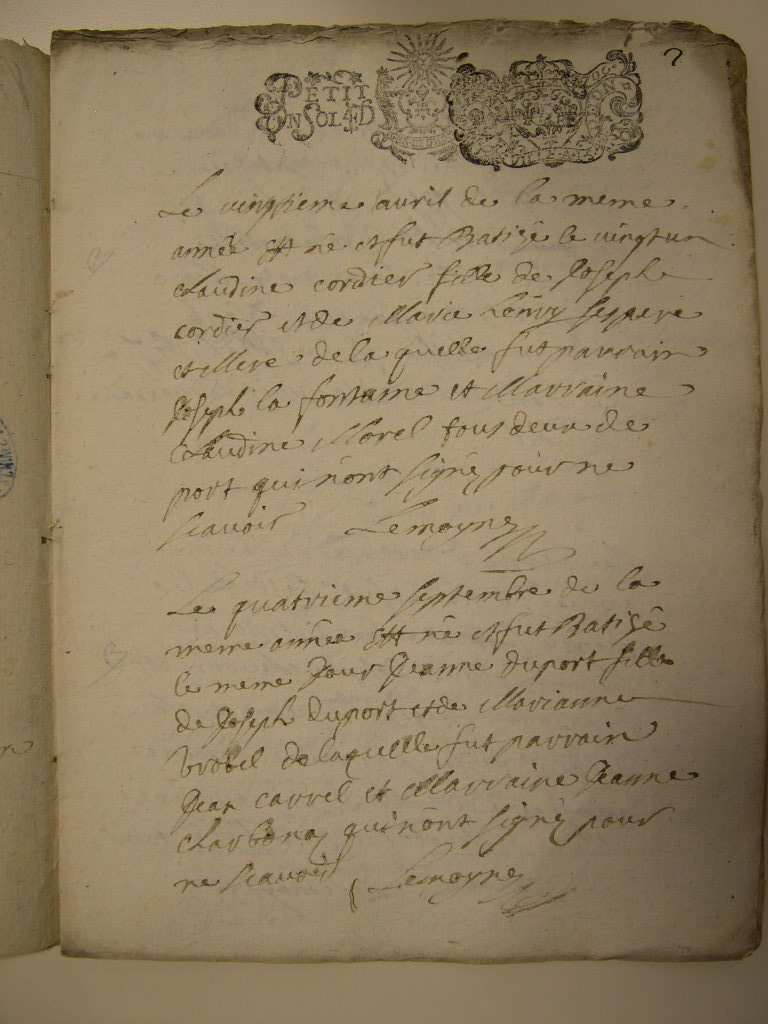 2
PETIT
UN SOL 4 D
Le vingtieme avril de la meme
année est né et fut Batisé le vingt un
claudine cordier fille de Joseph
cordier et de Marie Lenvy ses pere
et Mere de laquelle fut parrain
Joseph la fontaine et Marraine
Claudine Morel tous deux de
port qui n'ont signé pour ne
scavoir Lemoyne
Le quatrieme septembre de la
meme année est né et fut Batisé
le meme Jour Jeanne duport fille
de Joseph duport et de Marianne
brobel de laquelle fut parrain
Jean carrel et Marraine Jeanne
charbonay qui n'ont signé pour
ne scavoir Lemoyne